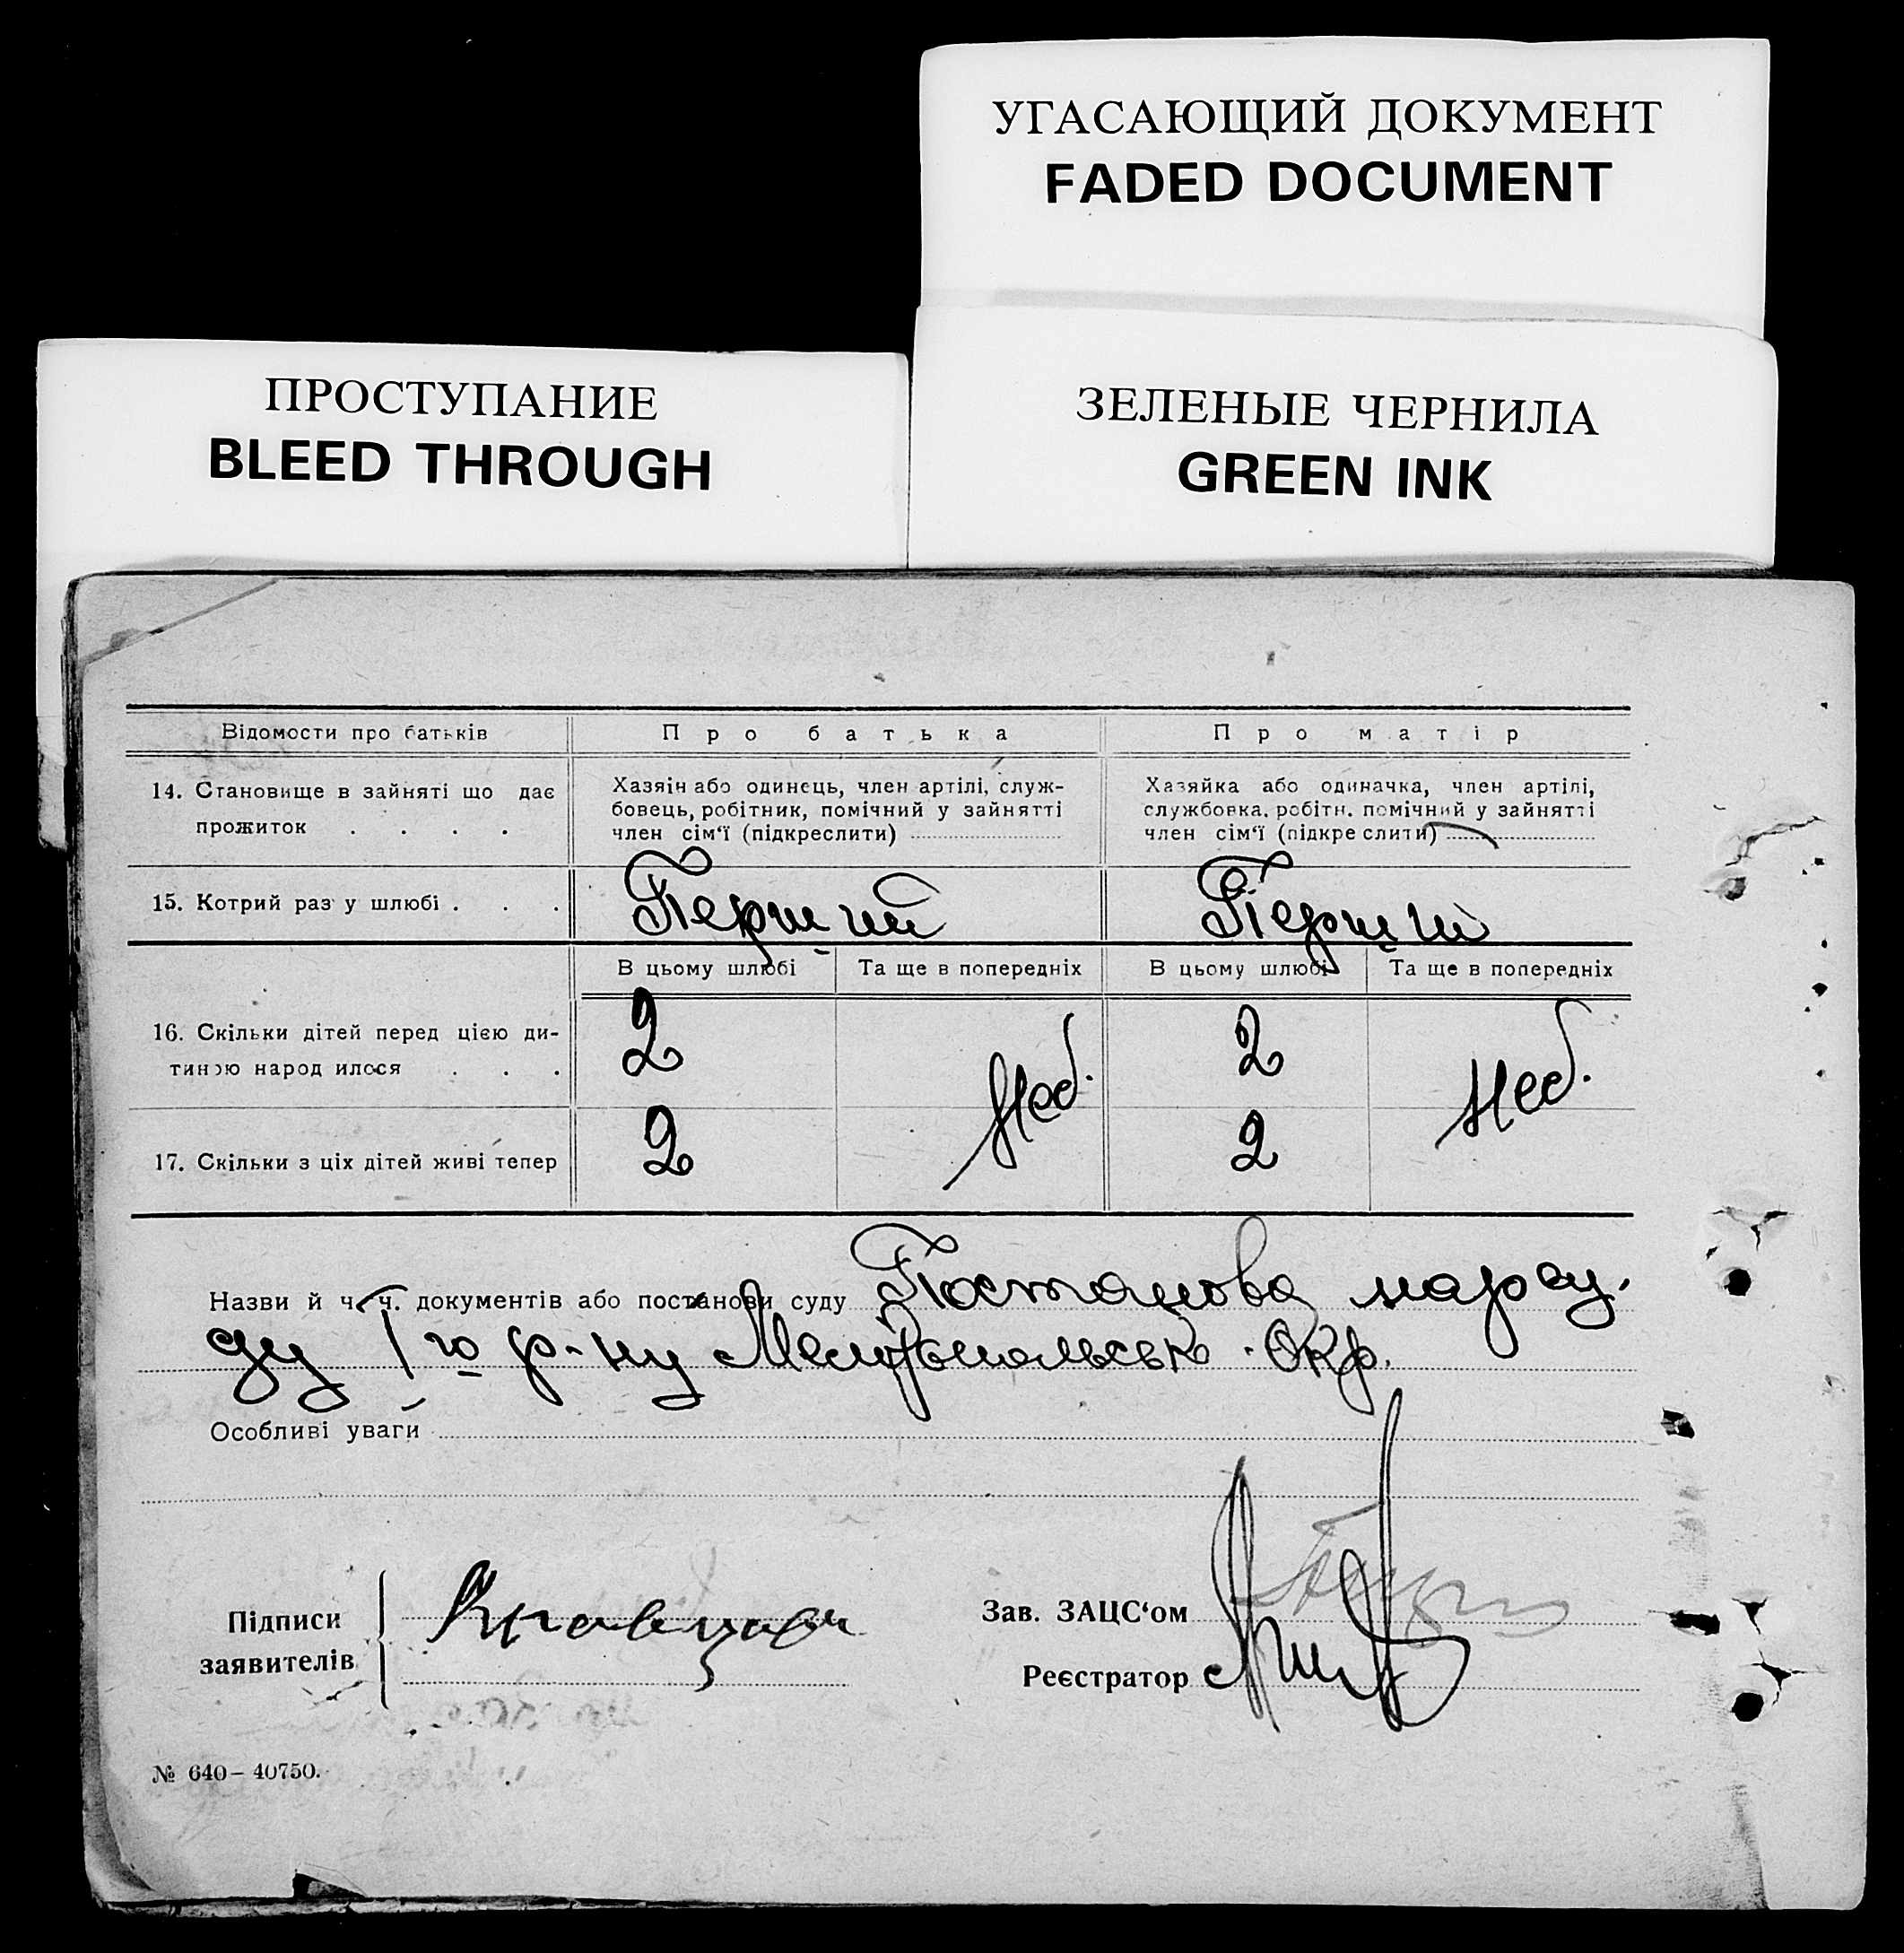 УГАСАЮЩИЙ ДОКУМЕНТ
FADED DOCUMENT
ПРОСТУПАНИЕ
BLEED THROUGH
ЗЕЛЕНЫЕ ЧЕРНИЛА
GREEN INK
Відомости про батьків
Про батька
Про матір
14. Становище в зайняті що дає
прожиток . . . .
Хазяін або одинець, член артілі, служ-
бовець, робітник, помічний у зайнятті
член сім‘ї (підкреслити)
Хазяйка або одиначка, член артілі,
службовка, робітн. помічний у зайнятті
член сім‘ї (підкреслити)
15. Котрий раз у шлюбі . . .
Перший
Перший
В цьому шлюбі
Та ще в попередніх
В цьому шлюбі
Та ще в попередніх
16. Скільки дітей перед цією ди-
тиною народилося . . .
2
2
17. Скільки з ціх дітей живі тепер
2
2
Назви й ч. ч. документів або постанови суду Постанова нарсу-
ду 1го р-ну Мелітопольсько Окр.
Особливі уваги
Підписи
заявителів
Зав. ЗАЦС‘ом
Реєстратор
№ 640—40750.